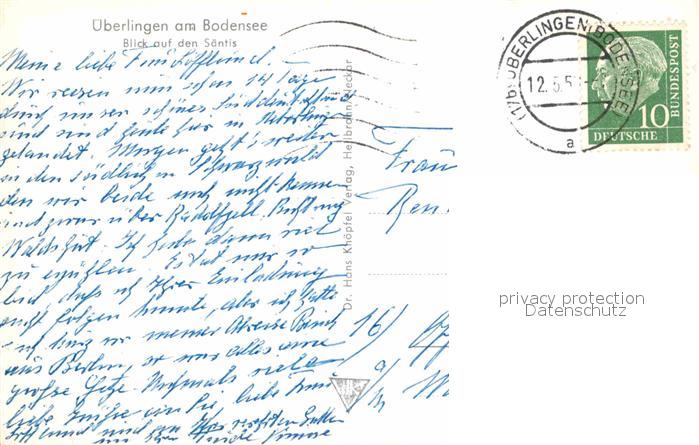 Überlingen am Bodensee
Blick auf den Säntis
Meine liebe Frau Löffleind.-
Wir reisen nun schon 14 Tage
durch unser schönes Süddeutschland
und sind heute hier in Überling.
gelandet. Morgen geht's weiter
in den südlich. Schwarzwald
den wir beide noch nicht kennen
und zwar über Radolfzell.
Waldshut. Ich habe dann viel
zu erzählen. Es tut mir so
leid, daß ich Ihrer Einladung
nicht folgen konnte, aber ich hatte
ich kurz vor meiner Abreise Besuch
aus Berlin, so war alles eine
große Hetze. Nochmals viele
liebe Grüße an Sie, liebe Frau
und an Ihren
Dr. Hans Knöpfel Verlag, Heilbronn/Neckar
Frau
Ren
16)
a/
(17b) ÜBERLINGEN (BODENSEE)
12.5.5
a
10
DEUTSCHE
BUNDESPOST
privacy protection
Datenschutz